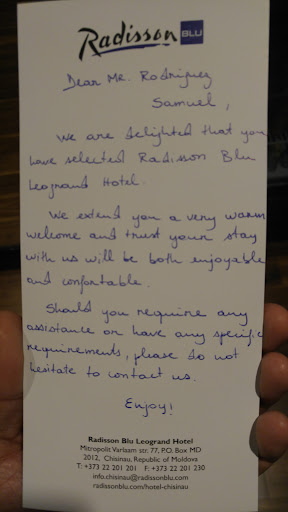 Radisson BLU
Dear Mr. Rodriguez
Samuel,
We are delighted that you
have selected Radisson Blu
Leogrand Hotel.
We extend you a very warm
welcome and trust your stay
with us will be both enjoyable
and confortable.
Should you require any
assistance or have any specific
requirements, please do not
hesitate to contact us.
Enjoy!
Radisson Blu Leogrand Hotel
Mitropolit Varlaam str. 77, P.O. Box MD
2012, Chisinau, Republic of Moldova
T: +373 22 201 201 F: +373 22 201 230
info.chisinau@radissonblu.com
radissonblu.com/hotel-chisinau